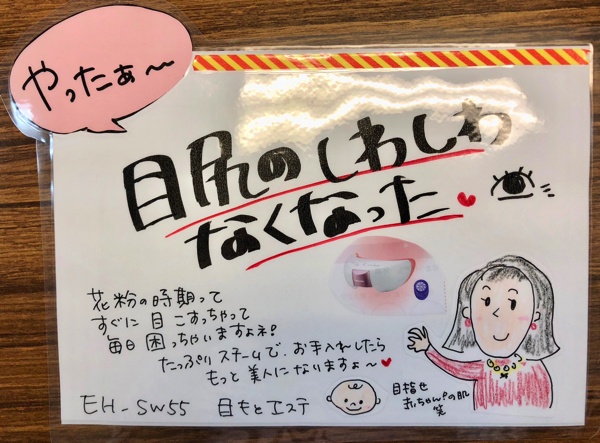 やったぁ〜
目尻のしわしわ
なくなった
花粉の時期って
すぐに目こすっちゃって
毎日困っちゃいますよネ!
たっぷりスチームで、お手入れしたら
もっと美人になりますょ〜
EH-SW55 目もとエステ
目指せ
赤ちゃんの肌
笑